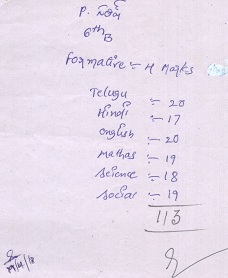 P.
6th B
Formative :- 4 Marks
Telugu :- 20
Hindi :- 17
English :- 20
Mathas :- 19
Science :- 18
Social :- 19
113